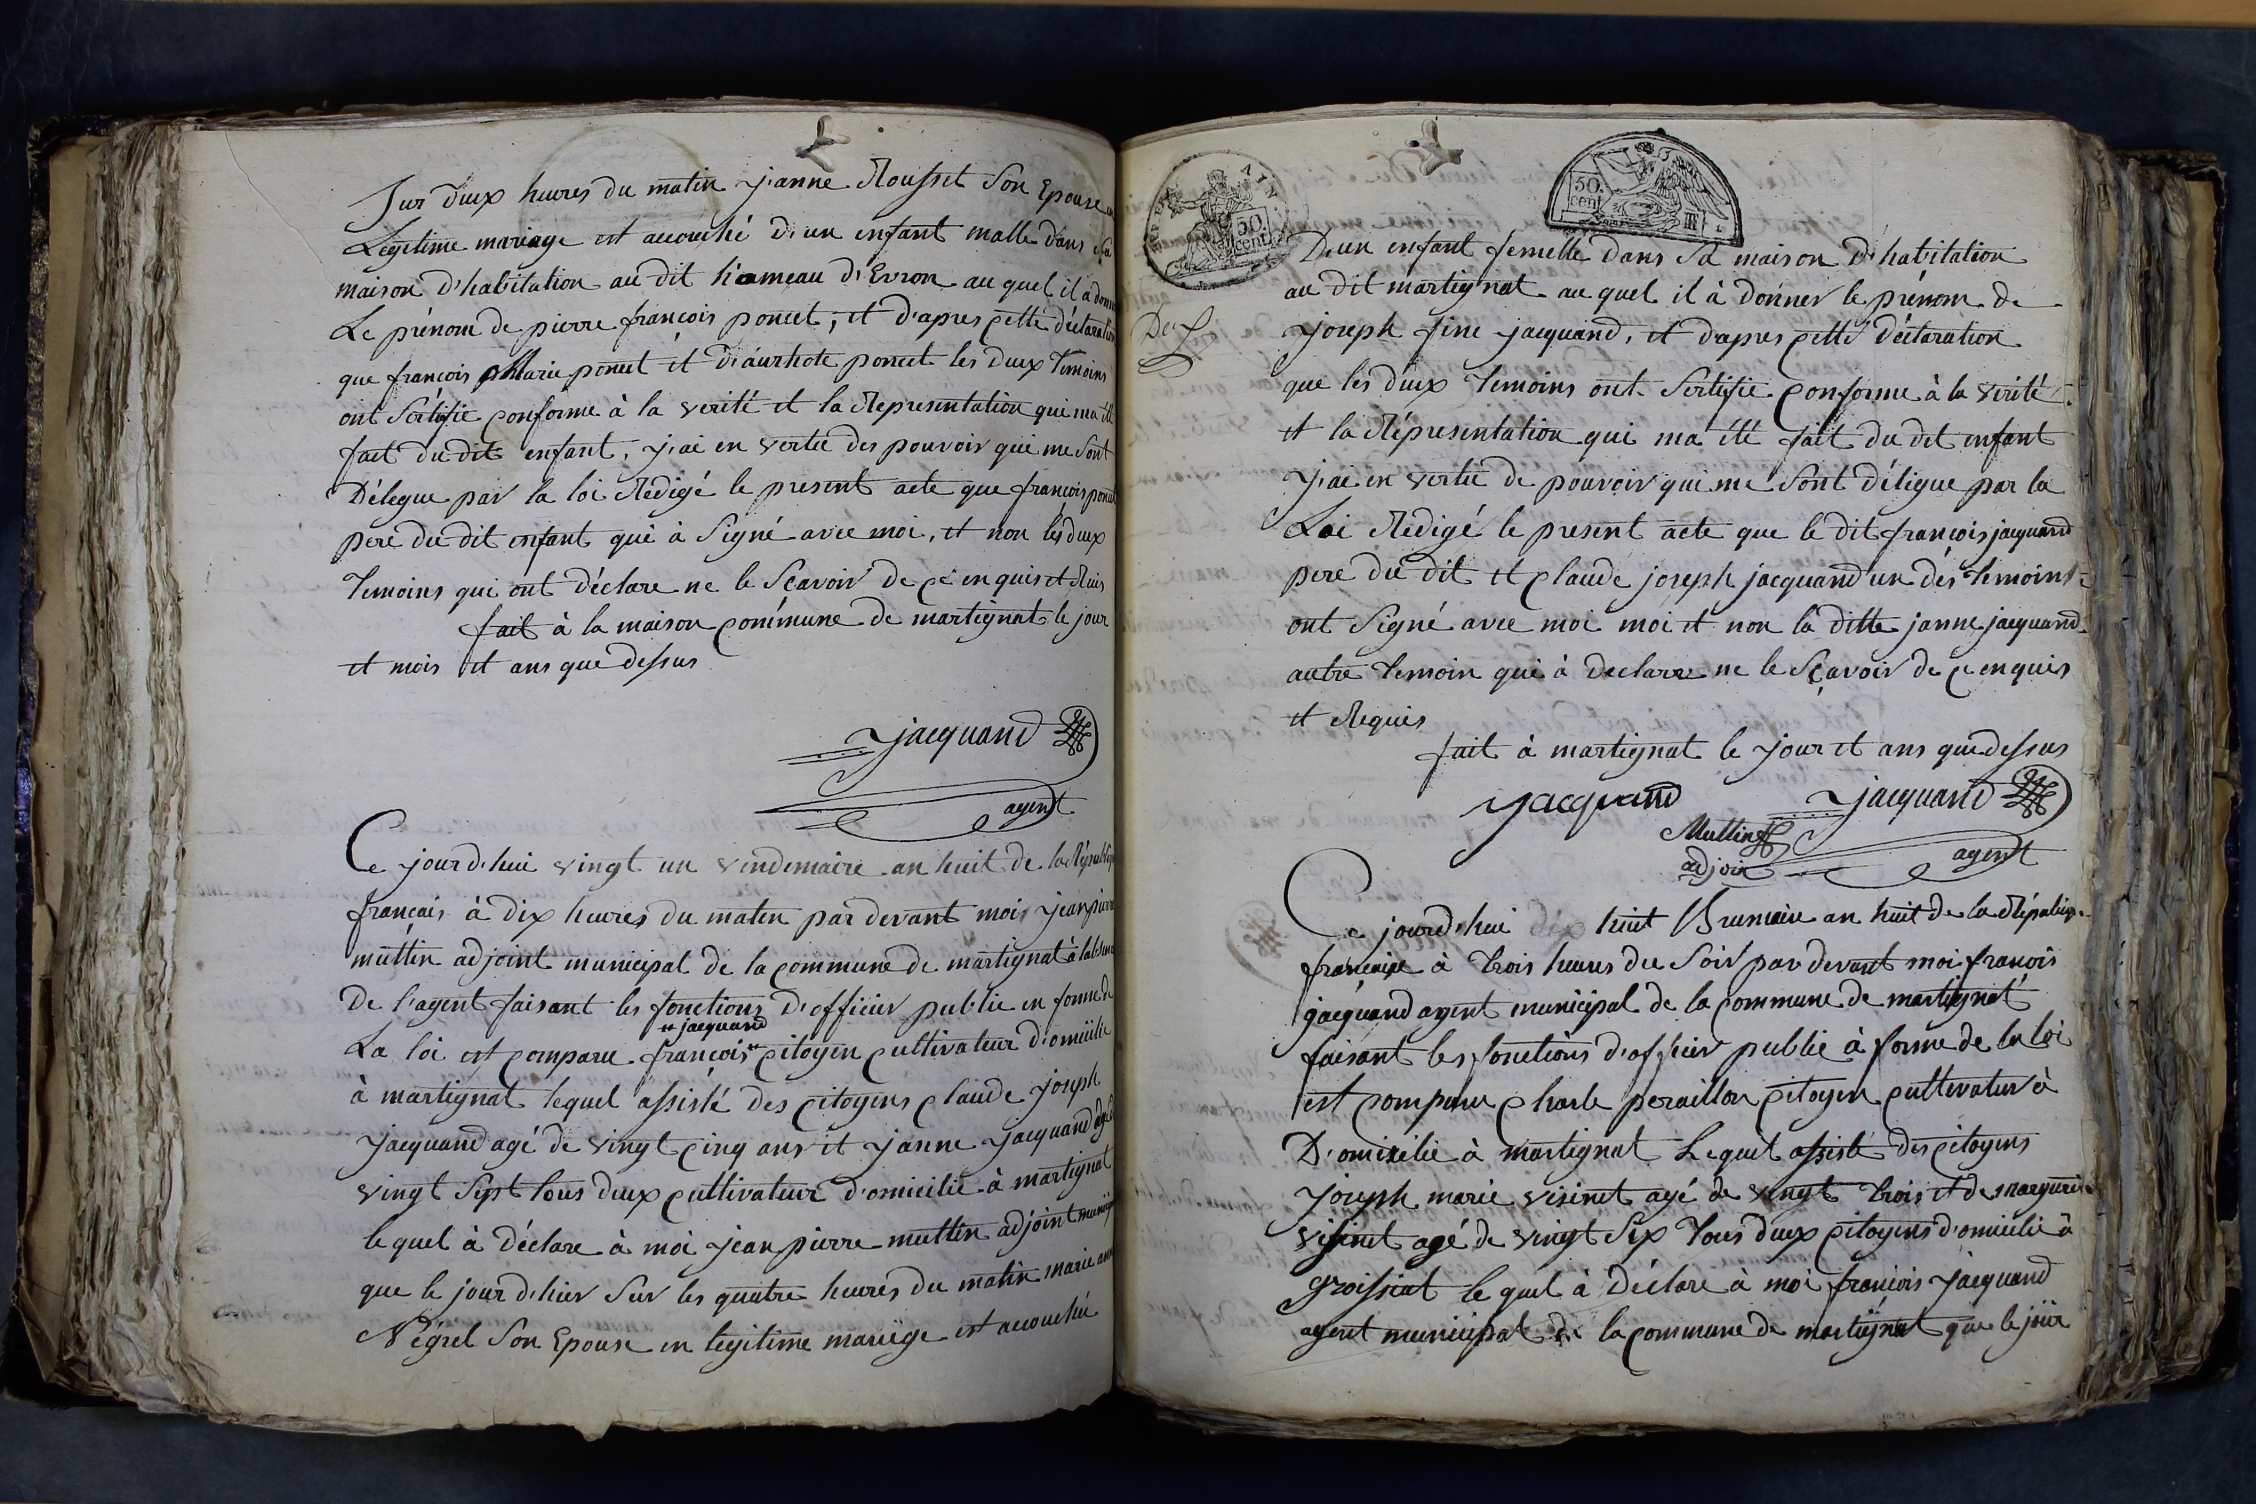 Sur deux heures du matin Jeanne Rousset Son Epouse en
Legitime mariage est accouché d'un enfant malle dans sa
maison d'habitation au dit hameau d'Evron au quel il a donné
Le prénom de pierre françois poncet, et d'apres cette déclaration
que françois Marie poncet et poncet les deux temoins
ont Sertifie conforme à la verité et la Representation qui ma été
fait du dit enfant, j'ai en vertu des pouvoir qui me Sont
Délegue par la loi Redigé le present acte que françois poncet
pere du dit enfant qui à Signé avec moi, et non les deux
temoins qui ont déclare ne le Sçavoir de ce enquis et Ruis
fait à la maison commune de martignat le jour
et mois et ans que dessus
jacquand
agent
Ce jourd'hui vingt un vendemaire an huit de la Républiq
français à dix heures du maten par devant mois jean pierre
muttin adjoint municipal de la commune de martignat à labsence
De l'agent faisant les fonctions D'officier public en forme de
jacquand
La loi est comparu françois citoyen cultivateur domicilie
à martignat lequel assisté des citoyens claude joseph
jacquand agé de vingt cinq ans et janne jacquand agé de
vingt Sept tous deux cultivateur d'omicilie à martignat
lequel à déclare à moi jean pierre muttin adjoint municip
que le jour d'hier Sur les quatre heures du matin marie anne
Négrel Son Epouse en legitime mariage est accouchée
AIN
50.
cent.
50.
cent
D'un enfant femelle dans Sa maison D'habitation
au dit martignat au quel il à donner le prénom de
joseph fine jacquand, et d'apres cette déclaration
que les deux temoins ont Sertifie conforme à la verité
et la Répresentation qui ma été fait du dit enfant
j'ai en vertu de pouvoir qui me Sont déligue par la
Loi Redigé le present acte que le dit françois jacquand
pere du dit et claude joseph jacquand un des temoins
ont Signé avec moi moi et non la ditte janne jacquand
autre temoin qui à declarre ne le Sçavoir de ce enquis
et Requis
fait à martignat le jour et ans que dessus
jacquand jacquand
Muttin
adjoin agent
Ce jourd'hui dix huit Brumaire an huit de la Républiq.
françaixe à trois heures du Soir par devant moi françois
jacquand agent municipal de la commune de martignat
faisant les fonctions d'officier public à forme de la loi
est comparu charle peraillon citoyen cultivateur à
D'omixilie à martignat Lequel assisté des citoyens
joseph marie visinet agé de vingt trois et de margueri
visinet agé de vingt Six tous deux citoyens d'omicilie à
groissiat le quel à Déclare à moi françois jacquand
agent municipal de la commune de martignat que le jour